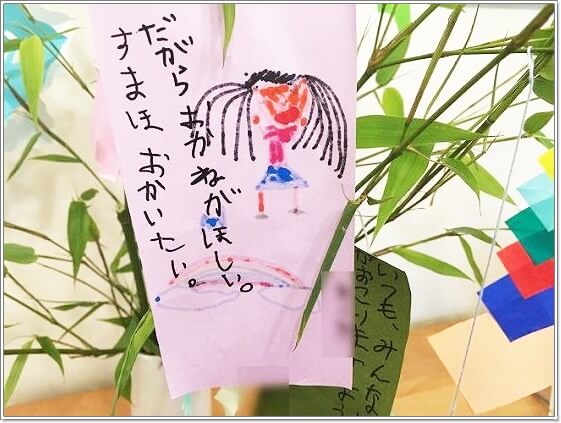 だがら おがねがほしい。
すまほ おかいたい。
いつも、みんな